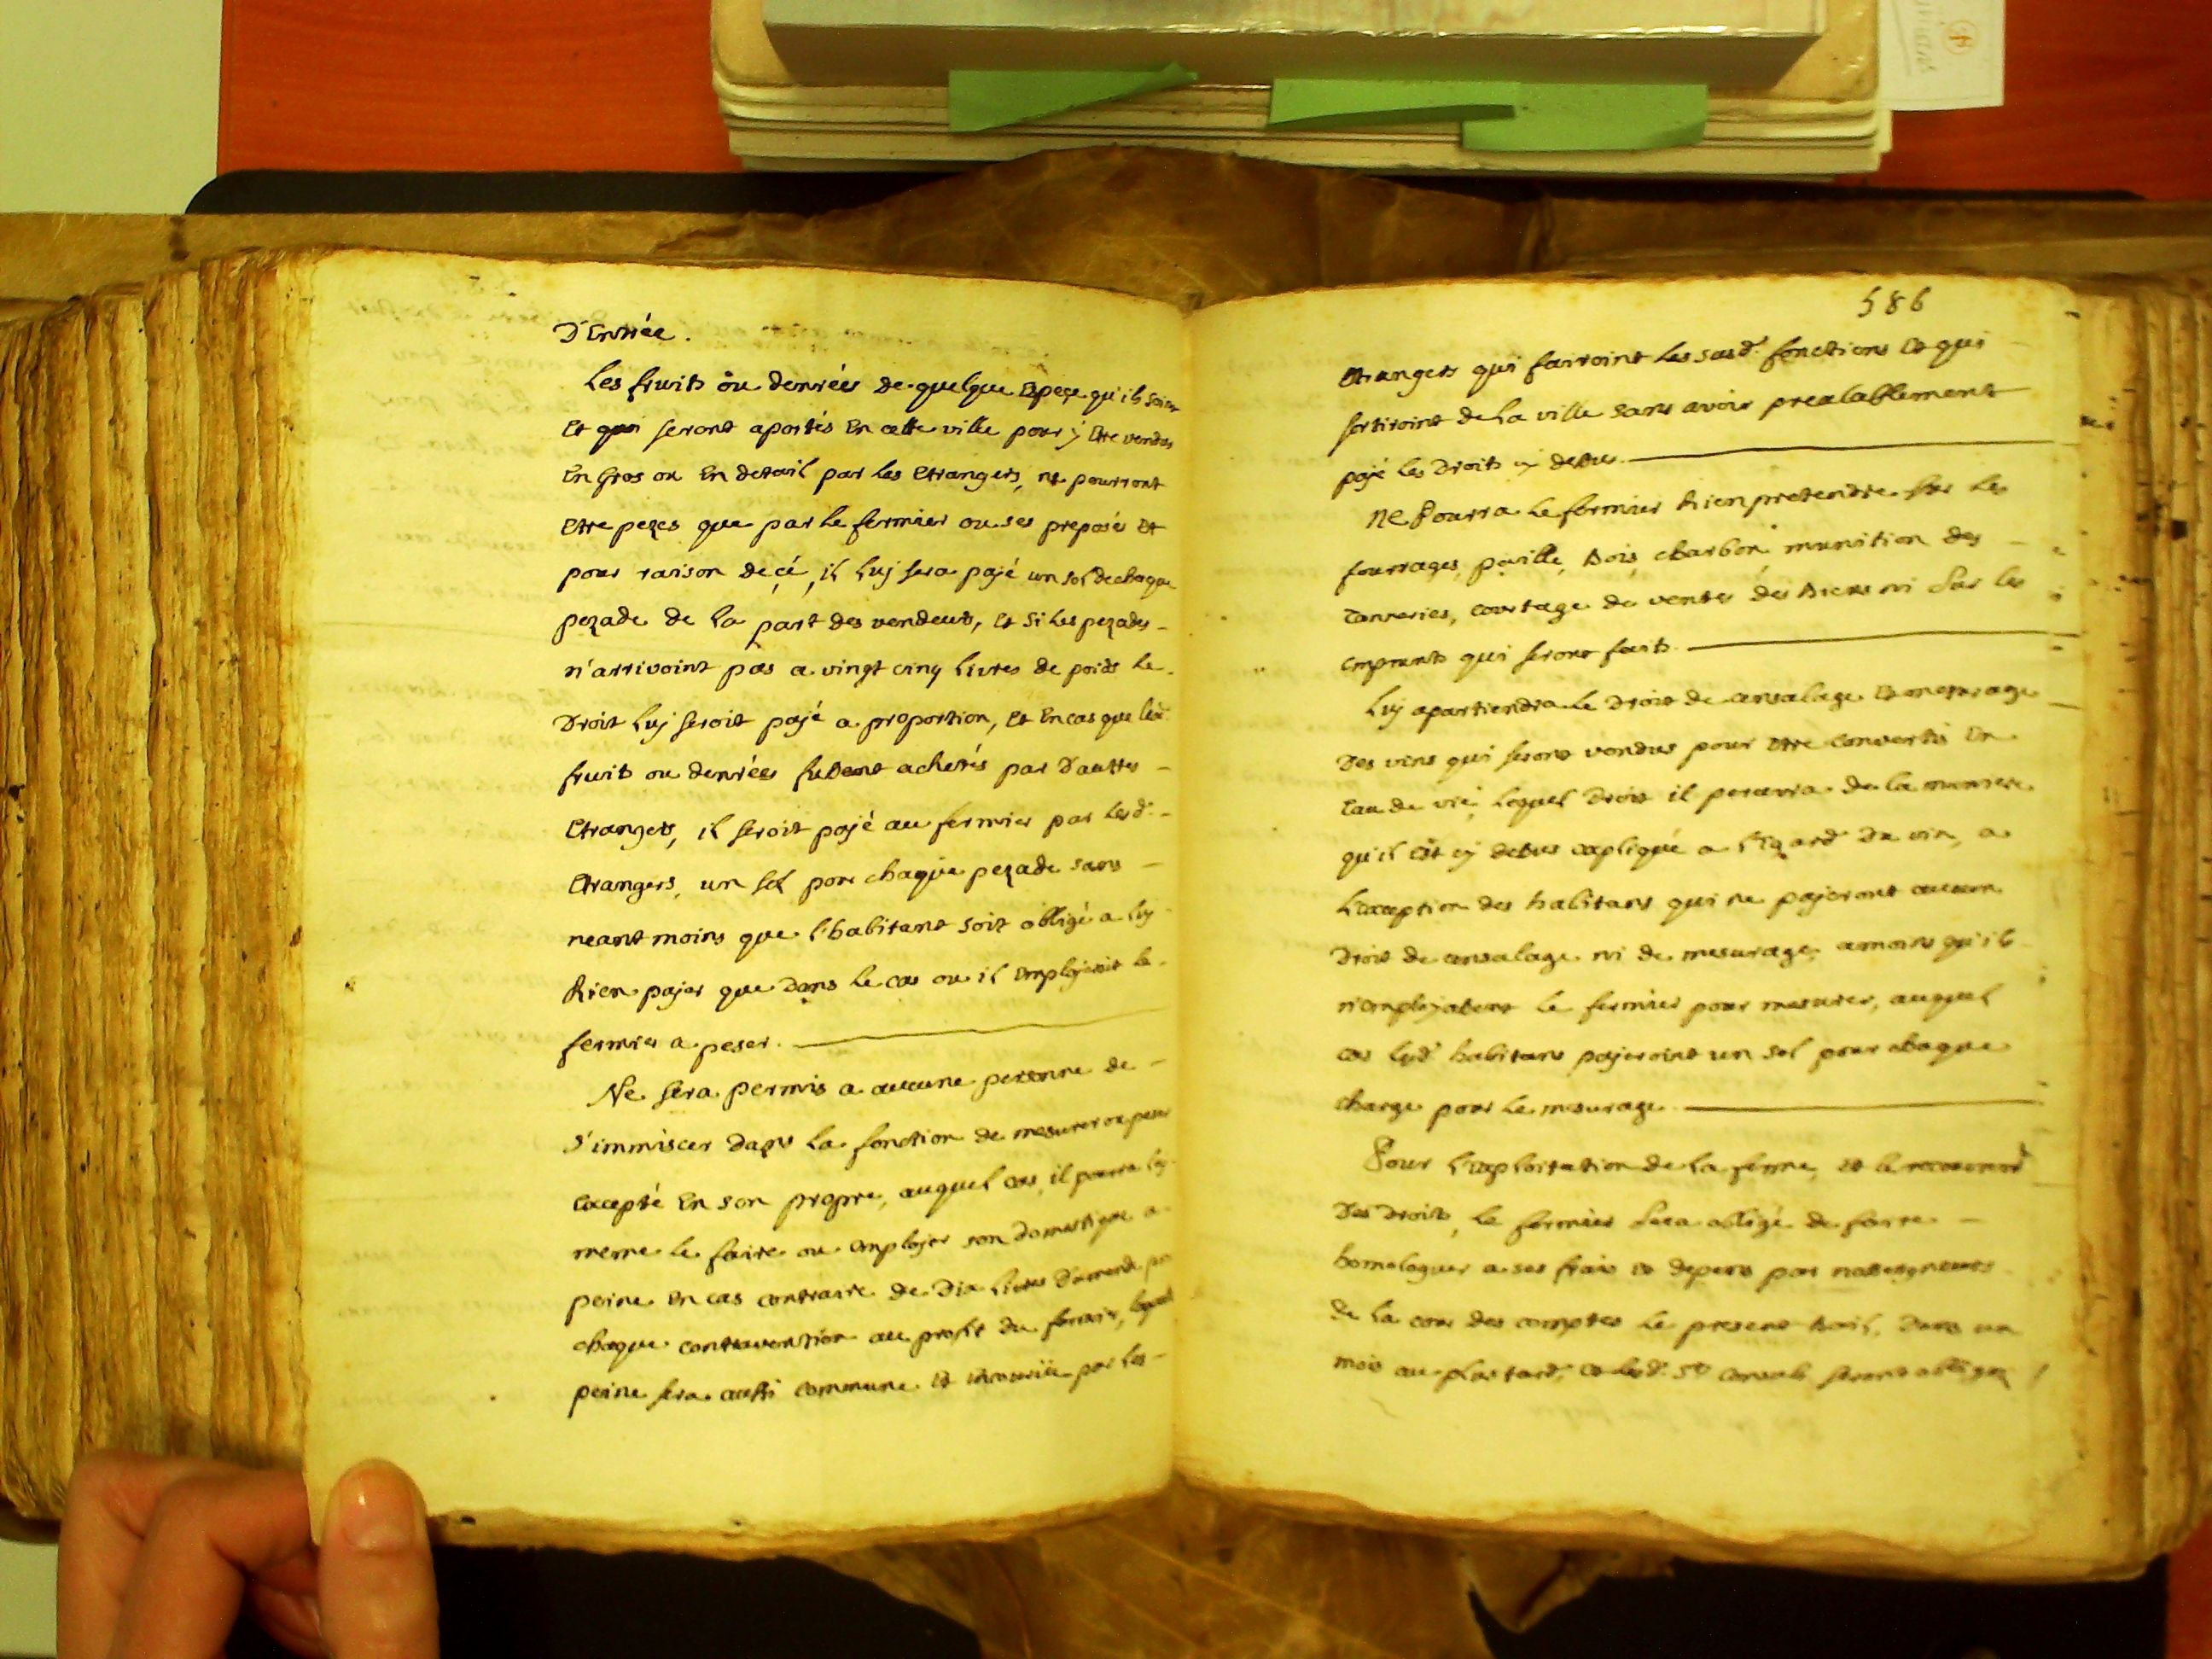 D'Entrée.
Les fruits ou denrées de quelque Espece qu'ils soient
Et qui seront aportés En cette ville pour ÿ Etre vendus
En Gros ou En detail par les Etrangers, ne pourront
Etre pezes que par le fermier ou ses preposés Et
pour raison de çé, il Luj sera pajé un sol de chaque
pezade de La part des vendeurs, Et si Les pezades
n'arrivoint pas a vingt cinq Livres de poids Le
Droit Luj seroit pajé a proportion, Et En cas que lesd.
fruits ou denrées fussent achetés par D'autres
Etrangers, il seroit pajé au fermier par Lesd.
Etrangers, un sol pour chaque pezade sans
neantmoins que l'habitant soit obligé a Luj
Rien pajer que Dans Le cas ou il Emplojeroit le
fermier a peser.
Ne sera permis a aucune personne de
s'immiscer Dans La fonction de mesurer ou peser
Excepté En son propre, auquel cas, il pourra Luj
meme le faire ou Emplojer son Domestique a
peine En cas contraire de Dix Livres D'amende pour
chaque contravention au profit du fermier, laquelle
peine sera aussi commune Et Encourüe par Les
586
Etrangers qui fairoint Les susd. fonctions Et qui
sortiroint de La ville sans avoir prealablement
pajé Les Droits cy dessus.
Ne Pourra Le fermier Rien pretendre sur Les
fourrages, paille, Bois, charbon munition des
Tanneries, courtage de ventes des Biens ni sur les
Emprunts qui seront faits.
Luj apartiendra Le Droit de censalage Et mesurage
Des vins qui seront vendus pour Etre convertis En
Eau de vie, Lequel Droit il percevra de la maniere
qu'il Est cy dessus expliqué a l'Egard Du vin, a
L'exception des habitans qui ne pajeront aucun
Droit de censalage ni de mesurage, amoins qu'ils
n'emplojassent le fermier pour mesurer, auquel
cas Lesd. habitans pajeroint un sol pour chaque
charge pour Le mesurage.
Pour L'exploitation de La ferme, Et le
Des Droits, le fermier sera obligé de faire
homologuer a ses frais Et depens par nosseigneurs
de La cour des comptes Le present Bail, Dans un
mois au plus tard, Et Lesd. Srs Consuls seront obligez